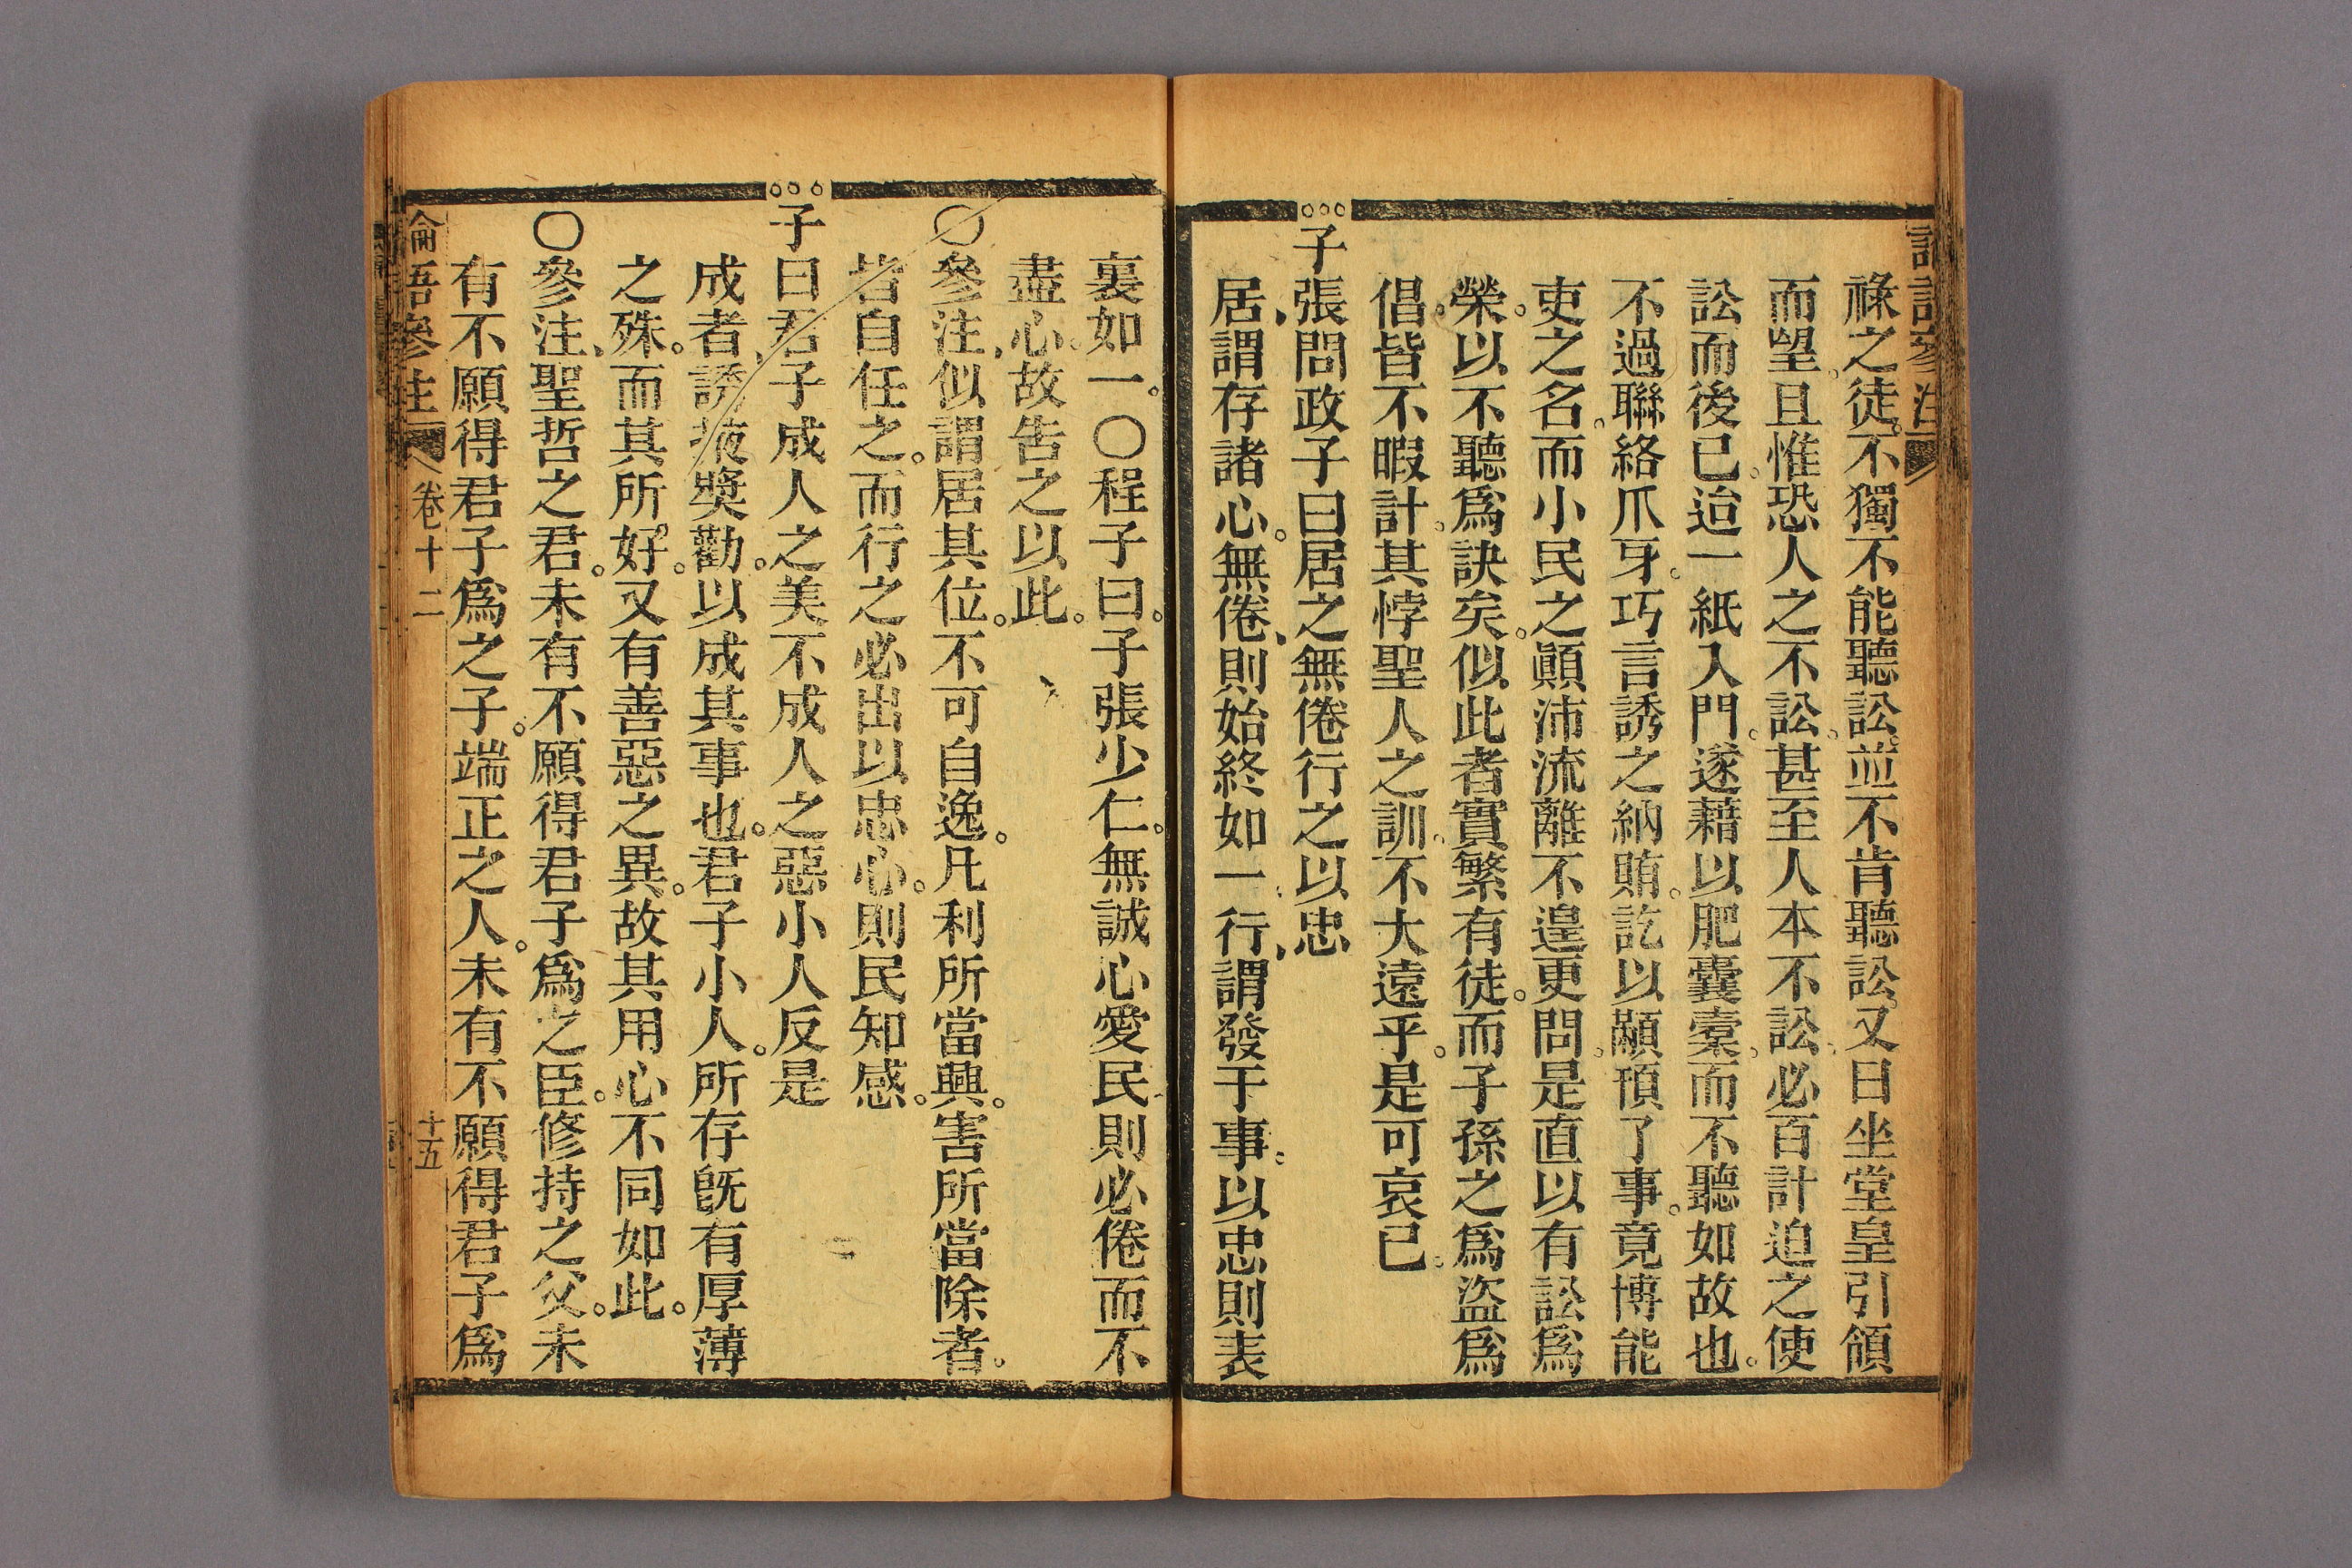 祿之徒。不獨不能聽訟。並不肯聽訟。又日坐堂皇引領
而望。且惟恐人之不訟。甚至人本不訟。必百計迫之使
訟而後已。迨一紙入門。遂藉以肥囊橐。而不聽如故也。
不過聯絡爪牙。巧言誘之納賄。訖以顢頇了事。竟博能
吏之名。而小民之顚沛流離不遑更問。是直以有訟爲
榮。以不聽爲訣矣。似此者實繁有徒。而子孫之爲盜爲
倡。皆不暇計。其悖聖人之訓。不大遠乎。是可哀已。
子張問政子曰居之無倦行之以忠
居、謂存諸心。無倦、則始終如一、行、謂發于事。以忠則表
裏如一。〇程子曰。子張少仁。無誠心愛民則必倦而不
盡心。故告之以此。
〇參注、似謂居其位。不可自逸。凡利所當興。害所當除者。
若自任之。而行之必出以忠心。則民知感。
子曰君子成人之美不成人之惡小人反是
成者、誘掖獎勸。以成其事也。君子小人。所存旣有厚薄
之殊。而其所好。又有善惡之異。故其用心不同如此。
〇參注、聖哲之君。未有不願得君子爲之臣。修持之父。未
有不願得君子爲之子。端正之人。未有不願得君子爲
論語參注 卷十二 十五